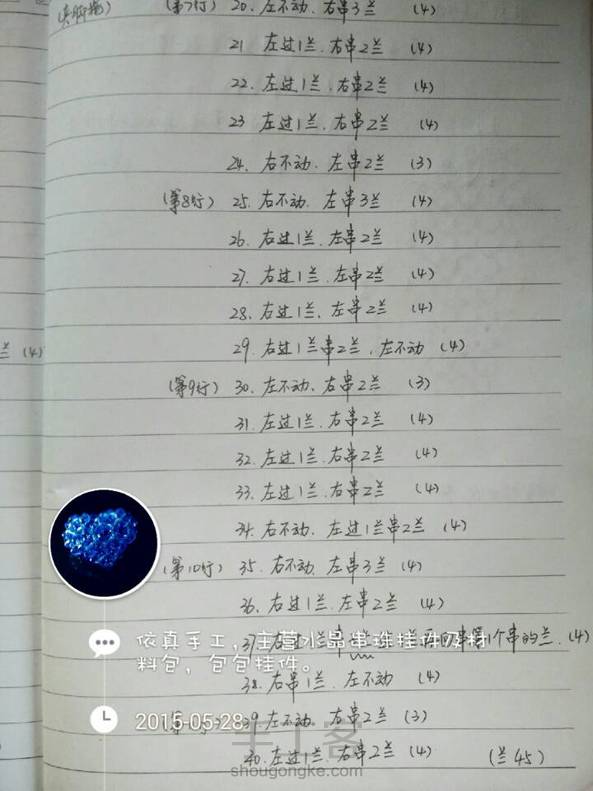 (第7行) 20. 左不动. 右串3兰 (4)
21 左过1兰. 右串2兰 (4)
22. 左过1兰. 右串2兰 (4)
23 左过1兰. 右串2兰 (4)
24. 右不动. 左串2兰 (3)
(第8行) 25. 右不动. 左串3兰 (4)
26. 右过1兰. 左串2兰 (4)
27. 右过1兰. 左串2兰 (4)
28. 右过1兰. 左串2兰 (4)
29. 右过1兰串2兰. 左不动 (4)
兰 (4)
(第9行) 30. 左不动. 右串2兰 (3)
31. 左过1兰. 右串2兰 (4)
32. 左过1兰. 右串2兰 (4)
33. 左过1兰. 右串2兰 (4)
34. 右不动. 左过1兰串2兰 (4)
(第10行) 35. 右不动. 左串3兰 (4)
36. 右过1兰. 左串2兰 (4)
37. 个串的兰. (4)
依真手工,主营水晶串珠挂件及材
料包，包包挂件。
38. 右串1兰. 左不动 (4)
2015-05-28
39. 左不动. 右串2兰 (3)
40. 左过1兰. 右串2兰 (4) (兰45)
手工客
shougongke.com